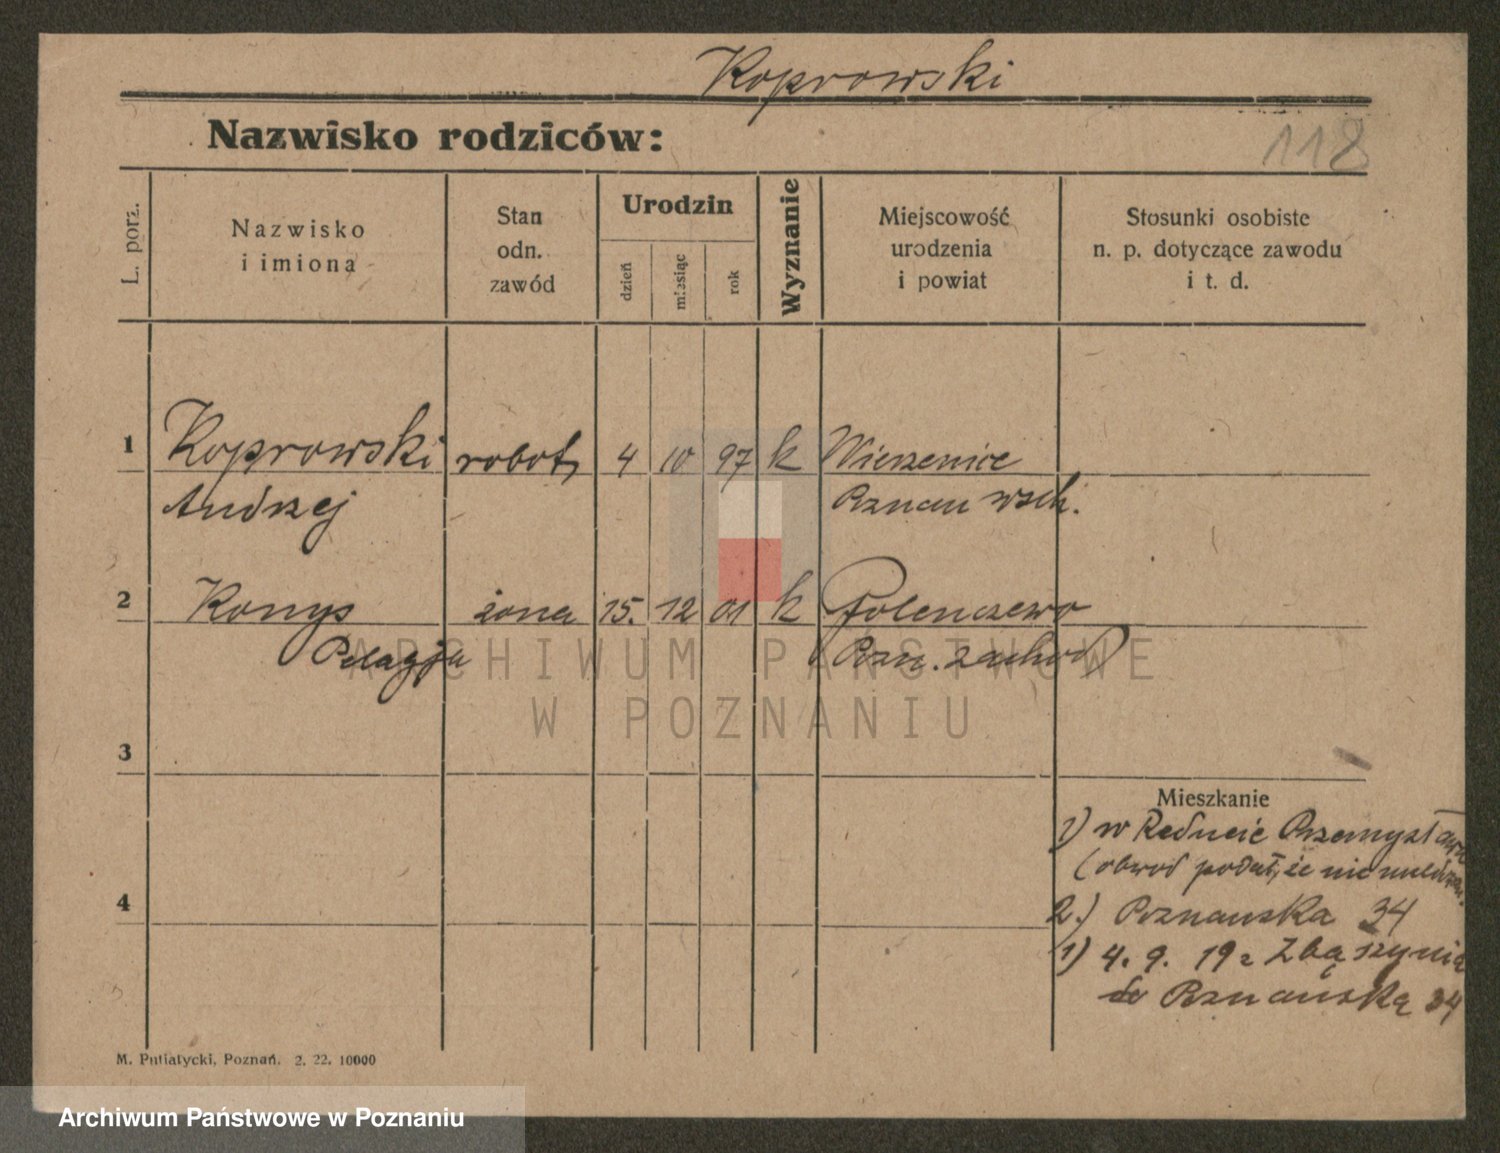 Koprowski
Nazwisko rodziców:
118
L. porz.
Nazwisko
i imiona
Stan
odn.
zawód
Urodzin
dzień
miesiąc
rok
Wyznanie
Miejscowość
urodzenia
i powiat
Stosunki osobiste
n. p. dotyczące zawodu
i t. d.
1 Koprowski robot, 4 10 97 k Wierzenice
Andrzej Pznan wsch.
2 Konys żona 15. 12 01 k Polenczewo
Pelagja Pzn. zachod
ARCHIWUM PAŃSTWOWE
W POZNANIU
3
Mieszkanie
1) w Reducie Przemysława
(obwod podał, że nie
4
2.) Poznanska 34
1) 4. 9. 19 z Zbąszynia
do Poznańską 34
M. Putiatycki, Poznań. 2. 22. 10000
Archiwum Państwowe w Poznaniu